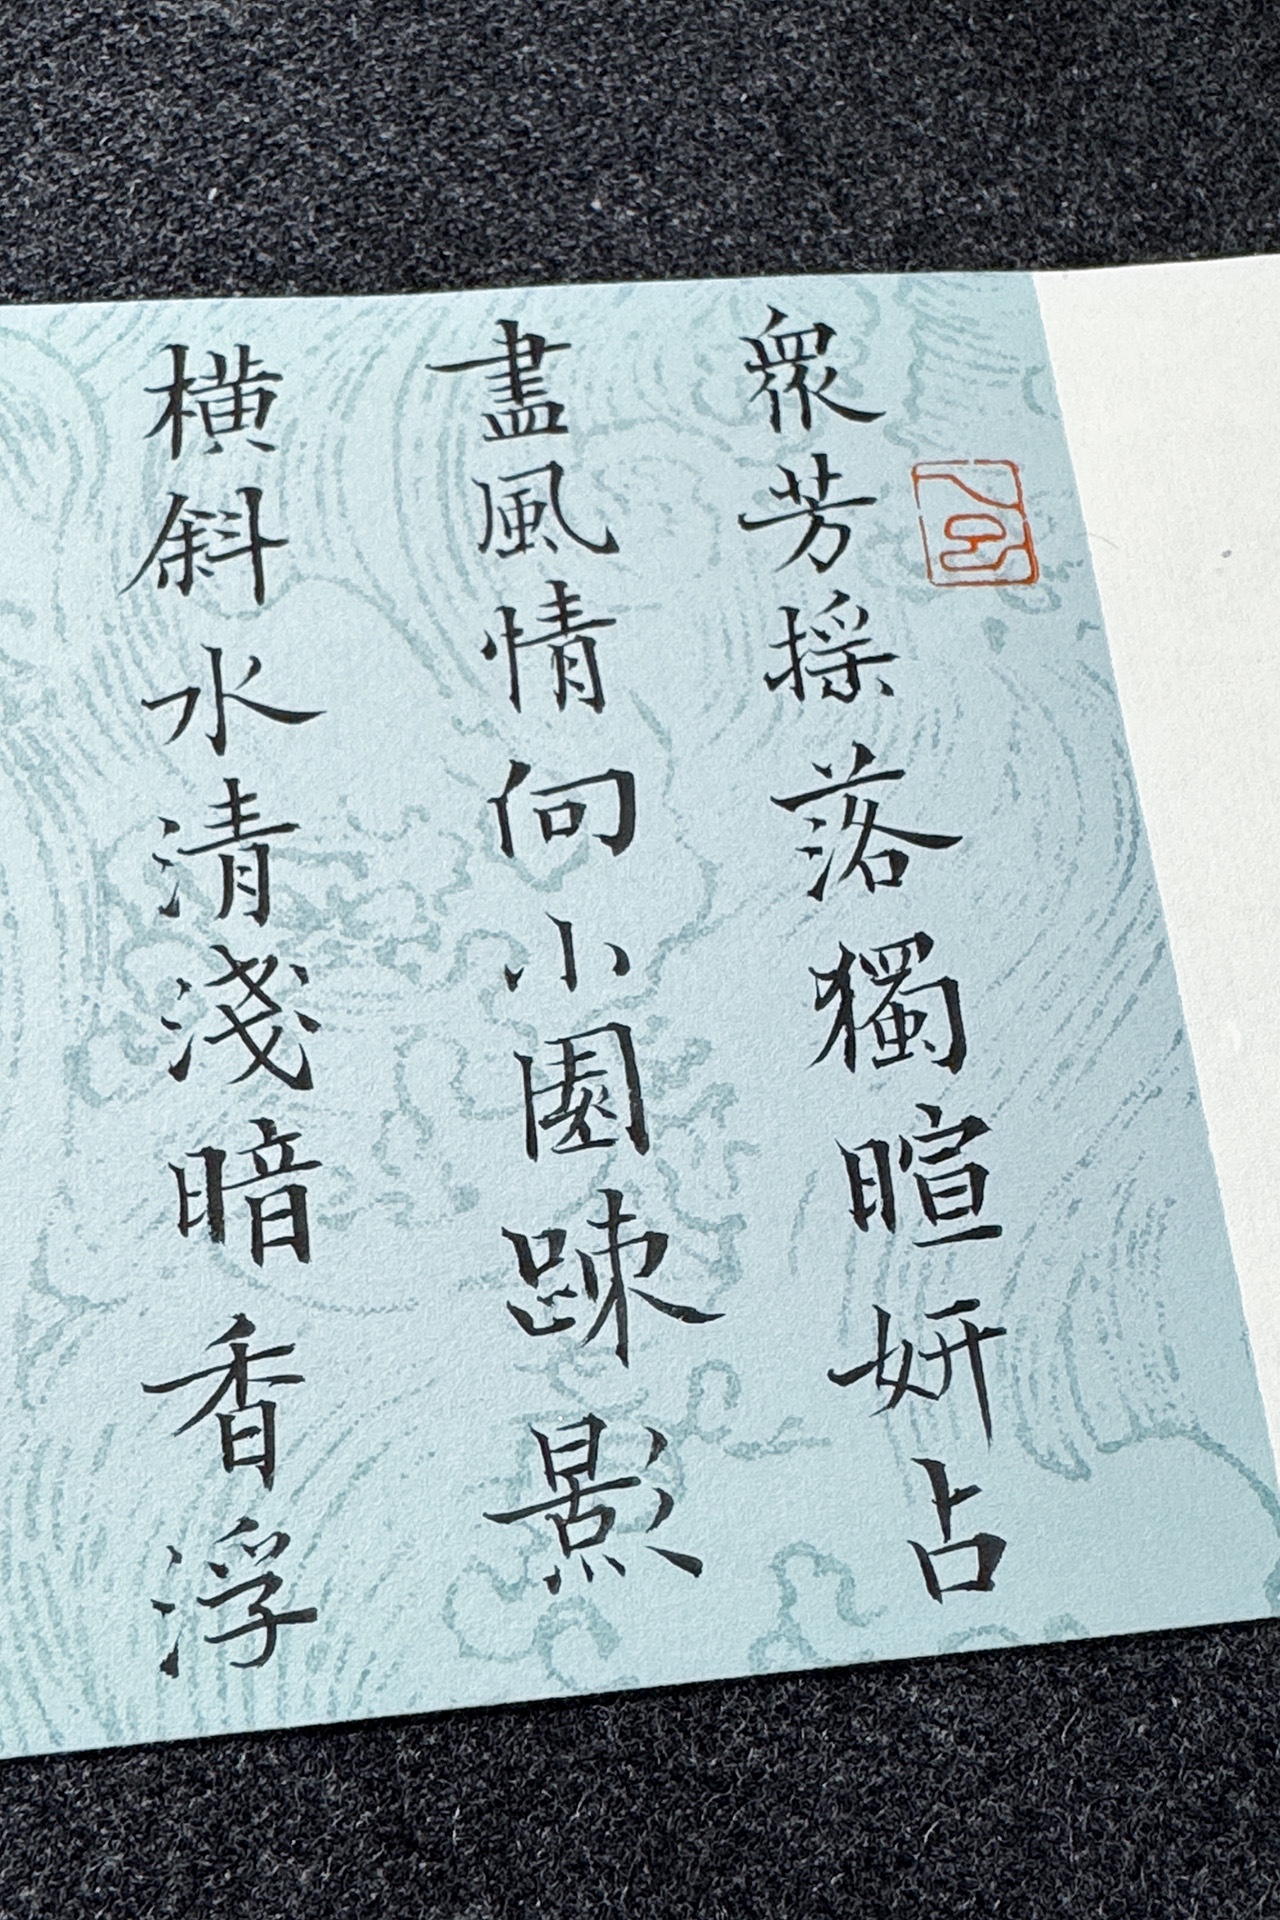 眾芳搖落獨暄妍占
盡風情向小園疎影
橫斜水清淺暗香浮